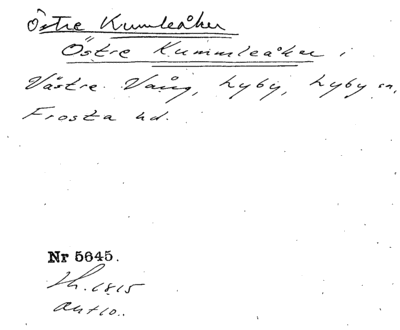 Östre Kumleåker
Östre Kummleåker i
Västre Vång, Lyby, Lyby sn,
Frosta hd.
Nr 5645.
1815